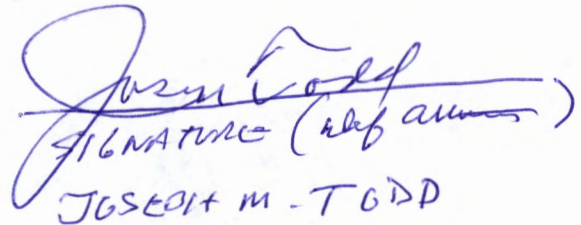 Joseph Todd
SIGNATURE (
JOSEPH M. TODD